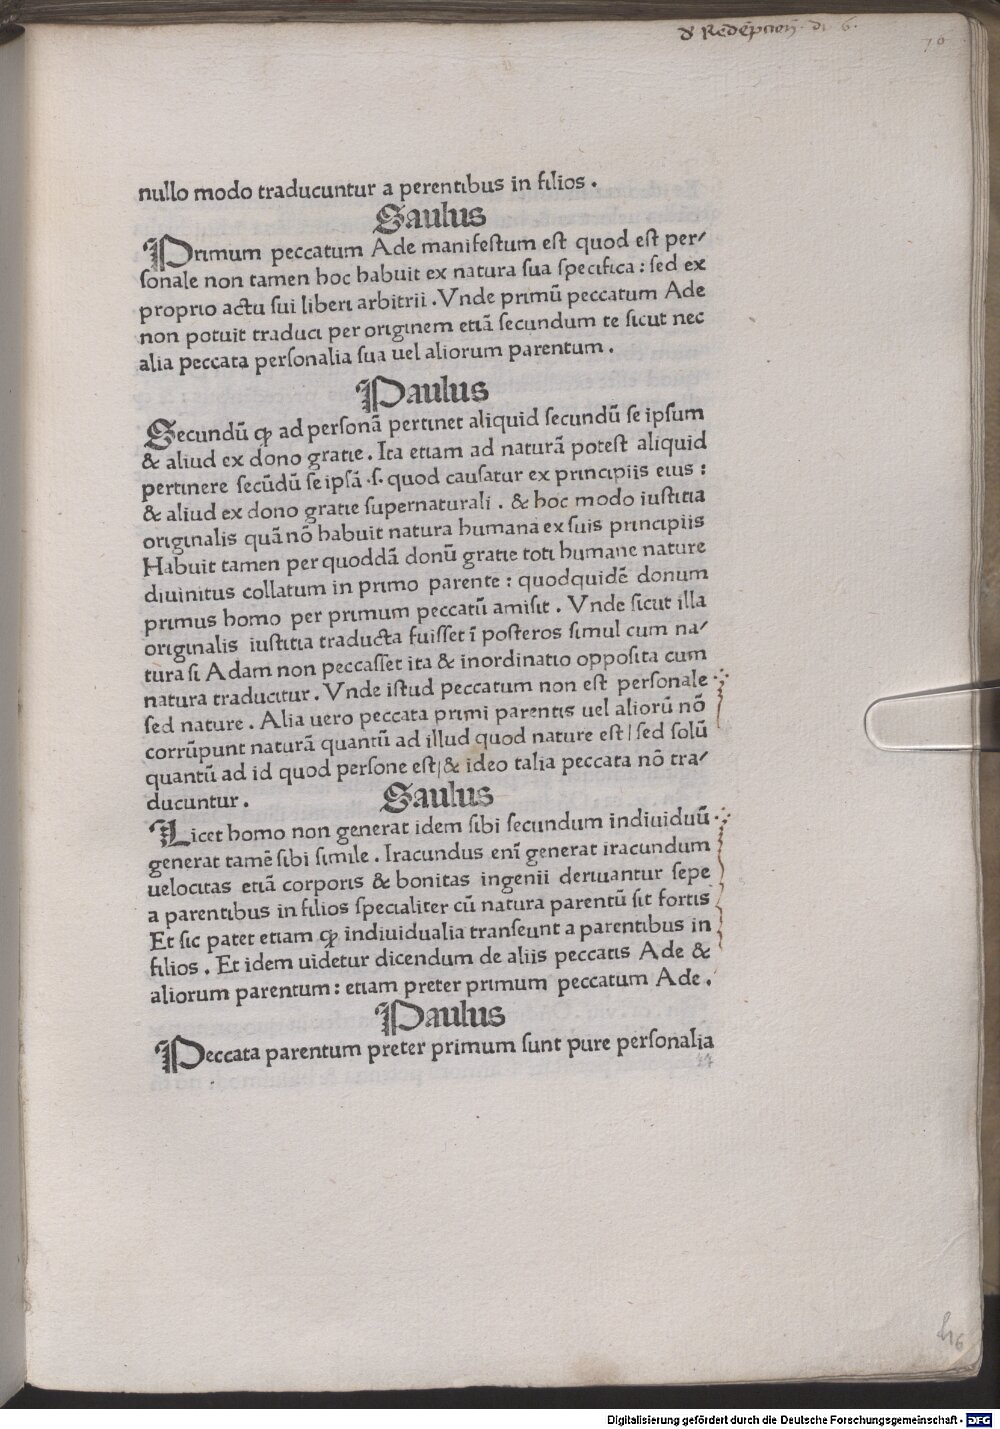 ꝺ Redẽpcioñ. di 6.
70
nullo modo traducuntur a perentibus in filios .
Saulus
Primum peccatum Ade manifestum est quod est per/
sonale non tamen hoc habuit ex natura sua specifica : sed ex
proprio actu sui liberi arbitrii . Vnde primũ peccatum Ade
non potuit traduci per originem etiã secundum te sicut nec
alia peccata personalia sua uel aliorum parentum .
Paulus
Secundũ ꝙ ad personã pertinet aliquid secundũ se ipsum
& aliud ex dono gratie . Ita etiam ad naturã potest aliquid
pertinere secũdũ se ipsã .s. quod causatur ex principiis eius :
& aliud ex dono gratie supernaturali . & hoc modo iustitia
originalis quã nõ habuit natura humana ex suis principiis
Habuit tamen per quoddã donũ gratie toti humane nature
diuinitus collatum in primo parente : quodquidẽ donum
primus homo per primum peccatũ amisit . Vnde sicut illa
originalis iustitia traducta fuisset ĩ posteros simul cum na/
tura si Adam non peccasset ita & inordinatio opposita cum
natura traducitur . Vnde istud peccatum non est personale
sed nature . Alia uero peccata primi parentis uel aliorũ nõ
corrũpunt naturã quantũ ad illud quod nature est | sed solũ
quantũ ad id quod persone est | & ideo talia peccata nõ tra/
ducuntur .
Saulus
Licet homo non generat idem sibi secundum indiuiduũ
generat tamẽ sibi simile . Iracundus enĩ generat iracundum
uelocitas etiã corporis & bonitas ingenii deriuantur sepe
a parentibus in filios specialiter cũ natura parentũ sit fortis
Et sic patet etiam ꝙ indiuidualia transeunt a parentibus in
filios . Et idem uidetur dicendum de aliis peccatis Ade &
aliorum parentum : etiam preter primum peccatum Ade .
Paulus
Peccata parentum preter primum sunt pure personalia
h6
Digitalisierung gefördert durch die Deutsche Forschungsgemeinschaft - DFG